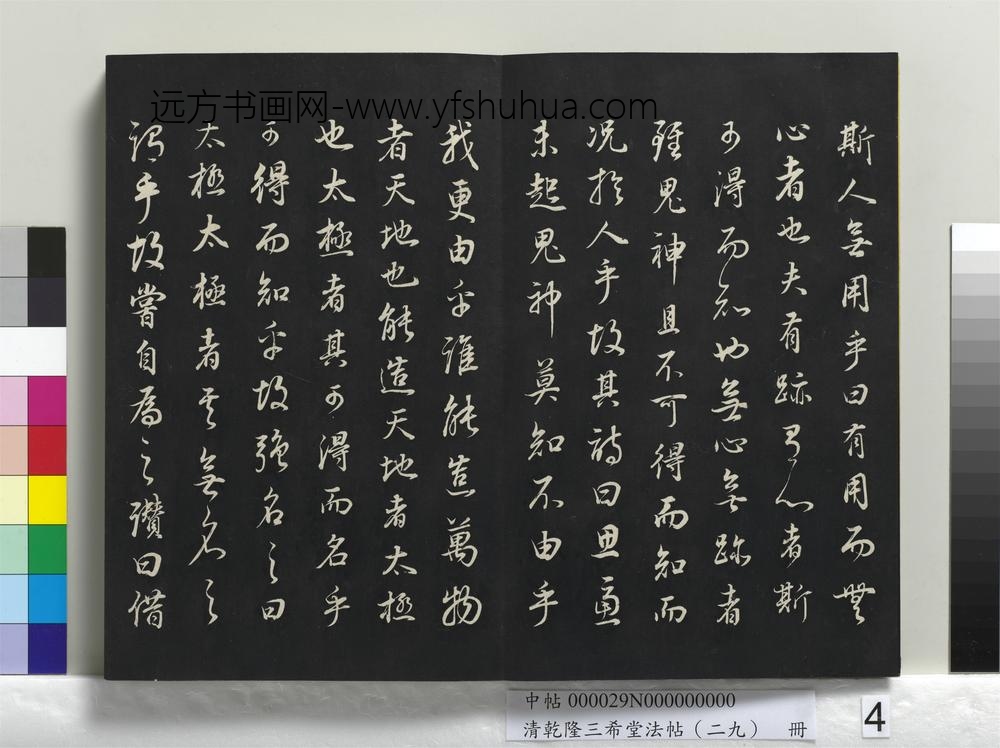 远方书画网-www.yfshuhua.com
斯人無用乎曰有用而無
心者也夫有跡有心者斯
可得而知也無心無跡者
雖鬼神且不可得而知而
況於人乎故其詩曰思慮
未起鬼神莫知不由乎
我更由乎誰能造萬物
者天地也能造天地者太極
也太極者其可得而名乎
可得而知乎故強名之曰
太極太極者其無名之
謂乎故嘗自為之讚曰借
中帖 000029N000000000
清乾隆三希堂法帖（二九） 冊
4